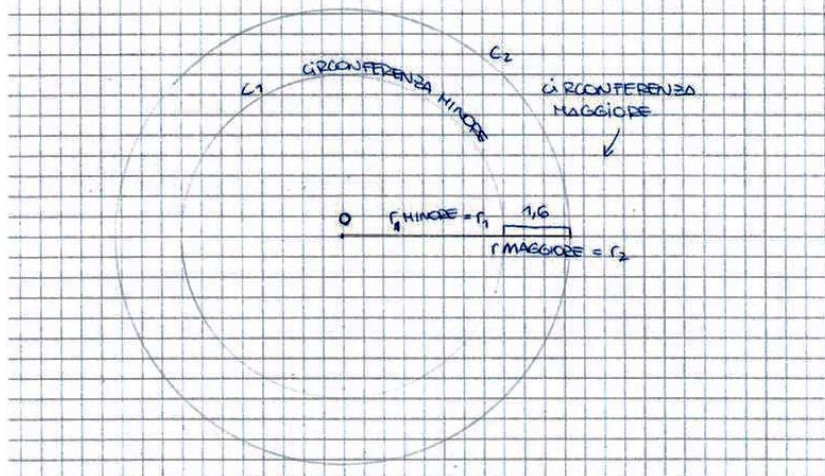 C2
CIRCONFERENZA MINORE
C1
CIRCONFERENZA
MAGGIORE
O
r, MINORE = r₁
1,6
r MAGGIORE = r₂